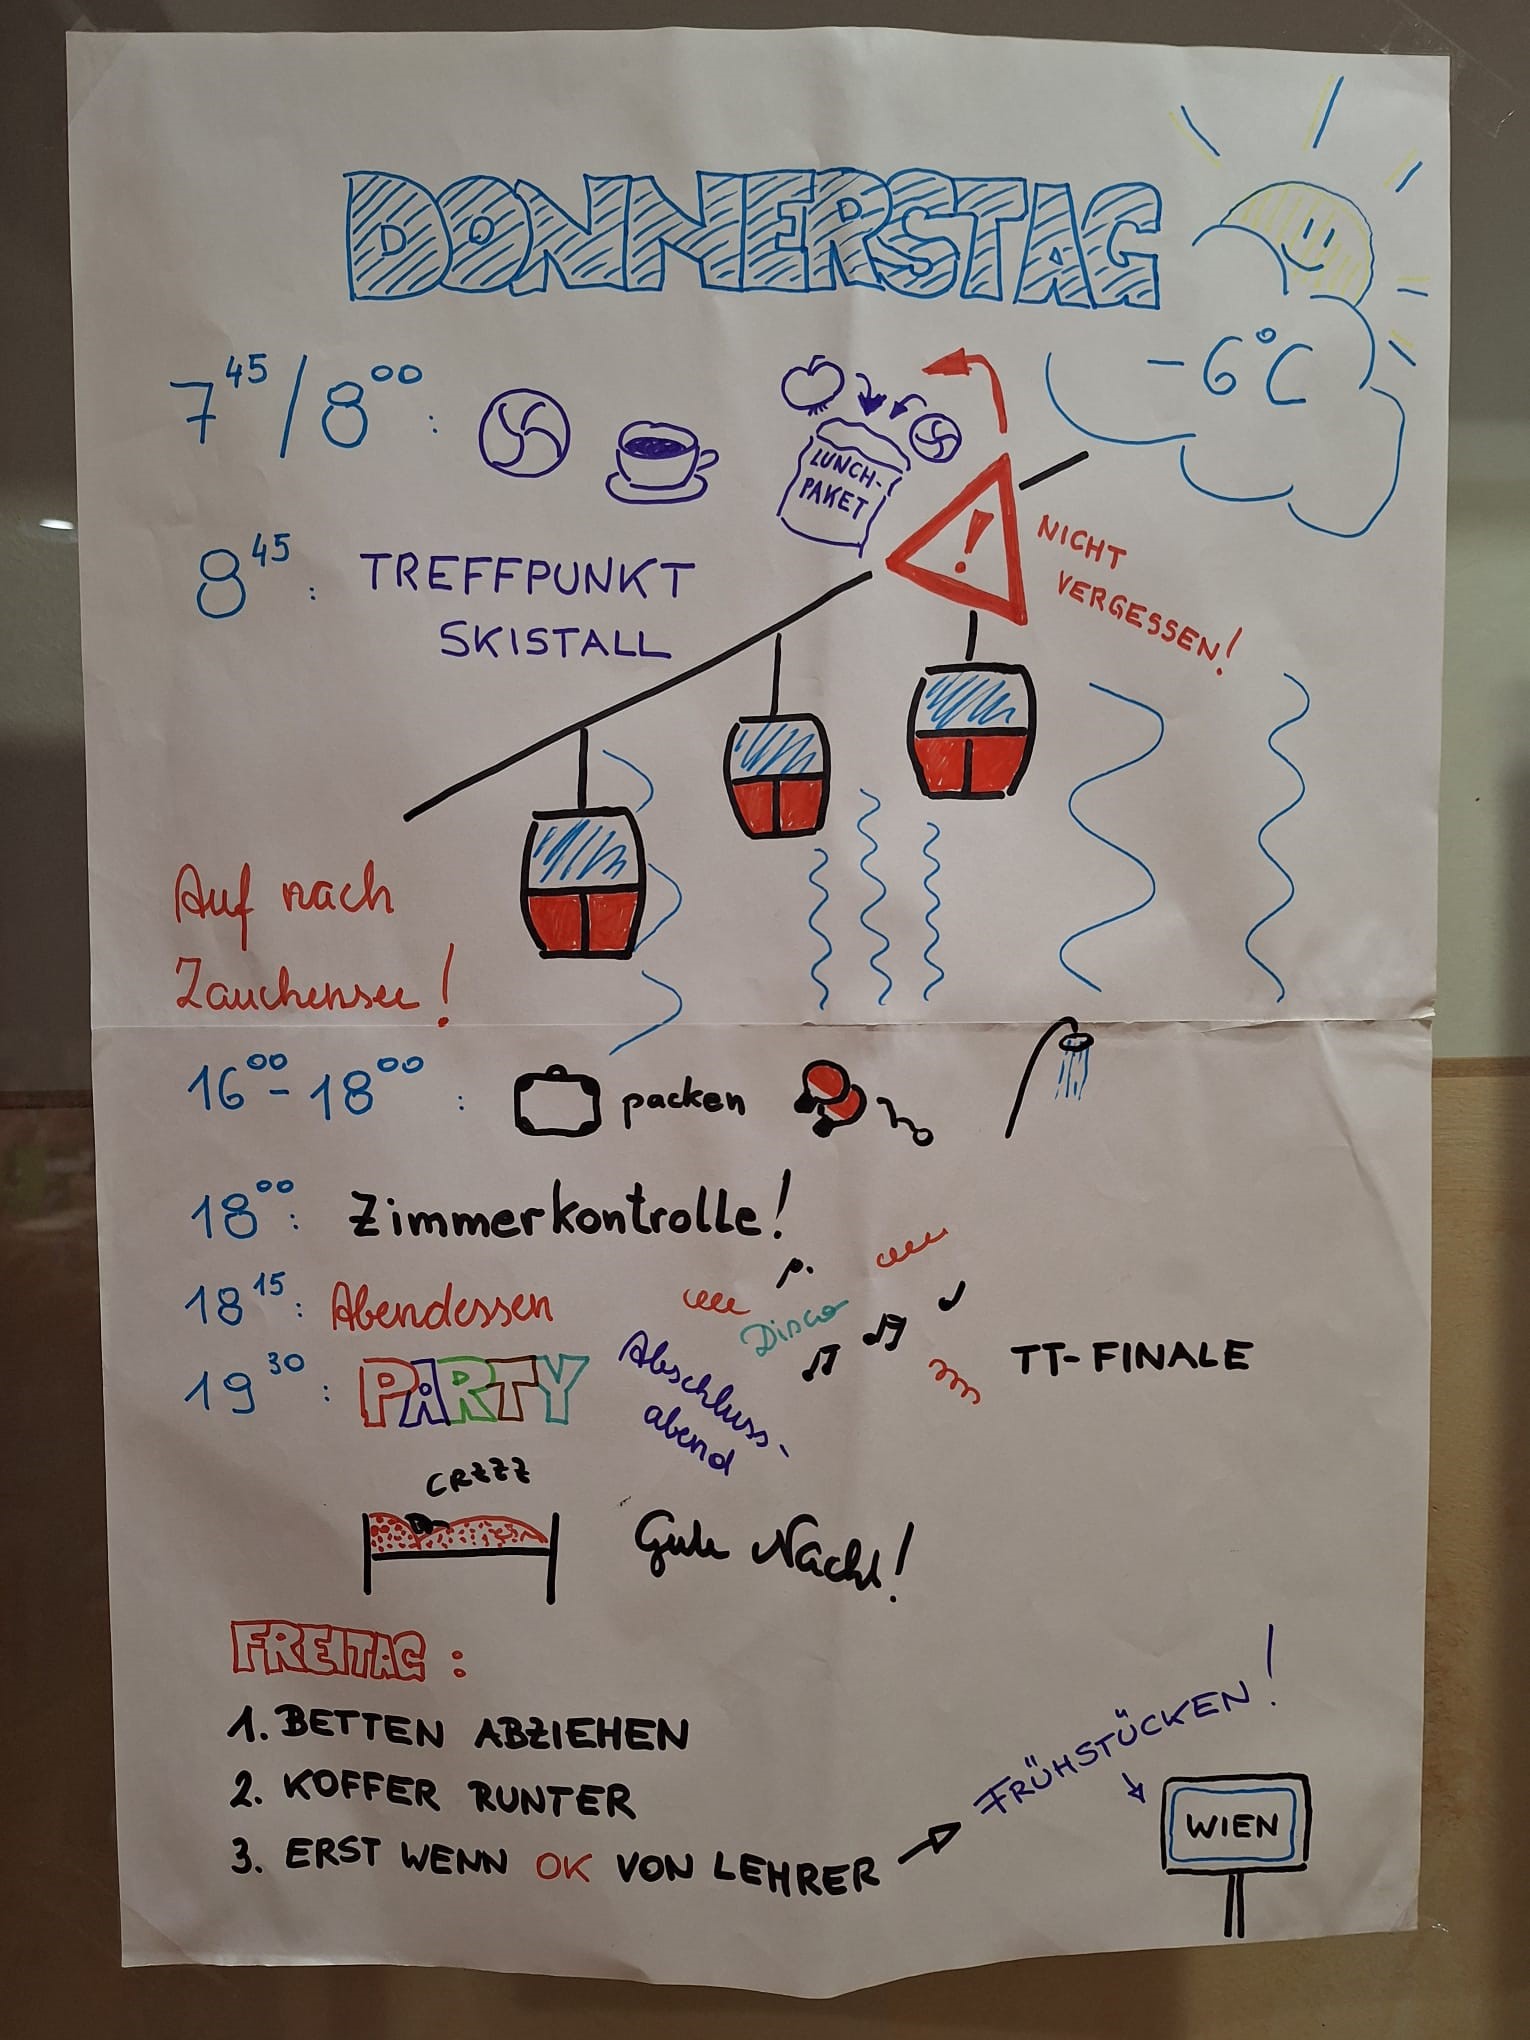 DONNERSTAG
-6°C
7⁴⁵/8⁰⁰:
LUNCH-
PAKET
!
NICHT
VERGESSEN!
8⁴⁵: TREFFPUNKT
SKISTALL
Auf nach
Zauchensee!
16⁰⁰-18⁰⁰: packen
18⁰⁰: Zimmerkontrolle!
18¹⁵: Abendessen
Disco
19³⁰: PARTY
Abschluss-
abend
TT-FINALE
CRZZZ
Gute Nacht!
FREITAG:
1. BETTEN ABZIEHEN
2. KOFFER RUNTER
3. ERST WENN OK VON LEHRER
FRÜHSTÜCKEN!
WIEN